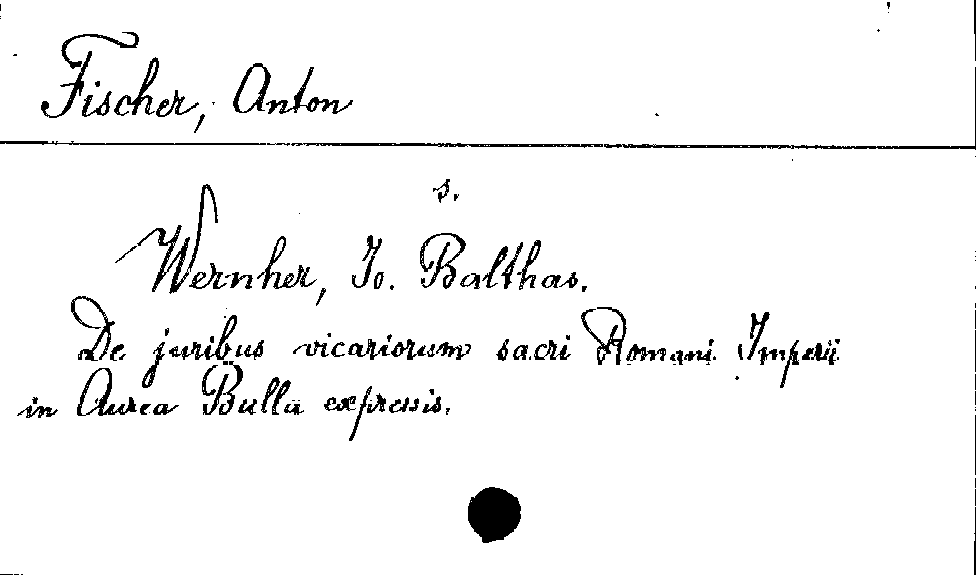 Fischer, Anton
s.
Wernher, Jo. Balthas.
De juribus vicariorum sacri Romani Imperii
in Aurea Bulla expressis.